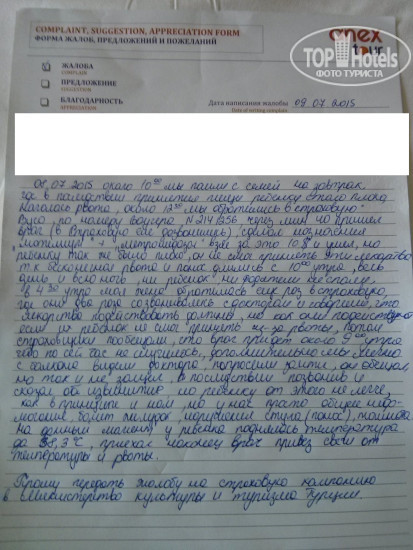 COMPLAINT, SUGGESTION, APPRECIATION FORM
ФОРМА ЖАЛОБ, ПРЕДЛОЖЕНИЙ И ПОЖЕЛАНИЙ
anex tour
TopHotels
ФОТО ТУРИСТА
ЖАЛОБА
COMPLAIN
ПРЕДЛОЖЕНИЕ
SUGGESTION
БЛАГОДАРНОСТЬ
APPRECIATION
Дата написания жалобы 09.07.2015
Date of writing complain
09.07.2015 около 10⁰⁰ мы пошли с семьей на завтрак
где в последствии принятия пищи ребенку стало плохо
Началась рвота, около 12³⁰ мы обратились в страховую
по номеру ваучера N 2141256, через мин 40 пришел
врач (в страховую еле дозвонились) сделал назначения
"мотилиум" + "метронидазол" взял за это 10$ и ушел, но
ребенку так же было плохо, он не смог принять эти лекарства
т.к бесконечная рвота и понос длились с 10⁰⁰ утра, весь
день и всю ночь, ни ребенок, ни родители не спали
в 4³⁰ утра моя жена обратилась еще раз в страховую,
где они два раза созванивались с доктором и говорили, что
лекарство подействовать должно, но как они подействуют
если их ребенок не смог принять из-за рвоты, потом
страховщики пообещали, что врач придет около 9⁰⁰ утра
чего по сей час не случилось, дополнительно мы лично
с балкона видели доктора, попросили зайти, он обещал
но так и не зашел, в последствии позвонив и
сказал об извинит, но ребенку от этого не легче,
как в принципе и нам, но у нас просто общее недо-
могание, болит желудок, нарушения стула (понос), тошнота
на данный момент у ребенка поднялась температура
до 38,3°C, приехал наконец врач привез свечи от
температуры и рвоты.
Прошу передать жалобу на страховую компанию
в Министерство культуры и туризма Турции.